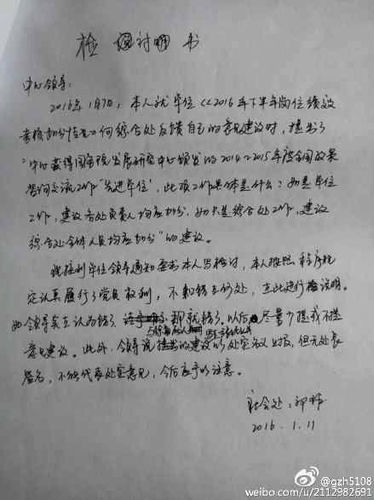 检讨书
中心领导：
2016年1月7日，本人就单位《2016年下半年岗位绩效
考核加分情况》向综合处反馈自己的意见建议时，提出了
“中心获得国务院发展研究中心颁发的2014-2015年度全国政策
咨询交流工作‘先进单位’，此项工作具体是什么？如是单位
工作，建议各处负责人均应加分，如只是综合处工作，建议
综合处全体人员均应加分”的建议。
我接到单位领导通知要求本人写检讨，本人按照程序规
定认真履行了党员权利，不知错在何处，在此进行检讨说明。
如领导实在认为错了
那就错了。以后尽量少提或不提
意见建议。此外，领导说提出的建议以处室议上报，但无处长
签名，不能代表处室意见，今后应予以注意。
社会处：
2016.1.11
@gzh5108
weibo.com/u/2112982691